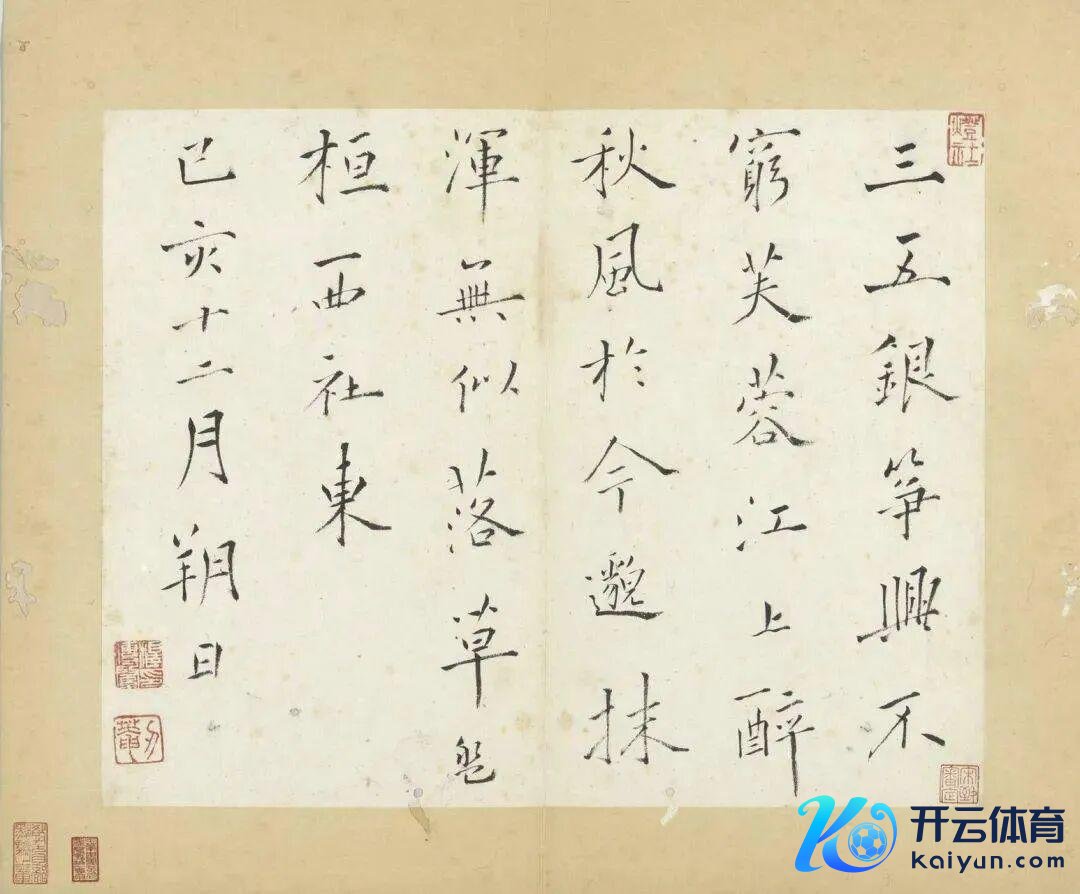 三五銀箏興不
窮芙蓉江上醉
秋風於今邈抹
渾無似落草盤
桓西社東
己亥十二月朔日
开云体育
kaiyun.com